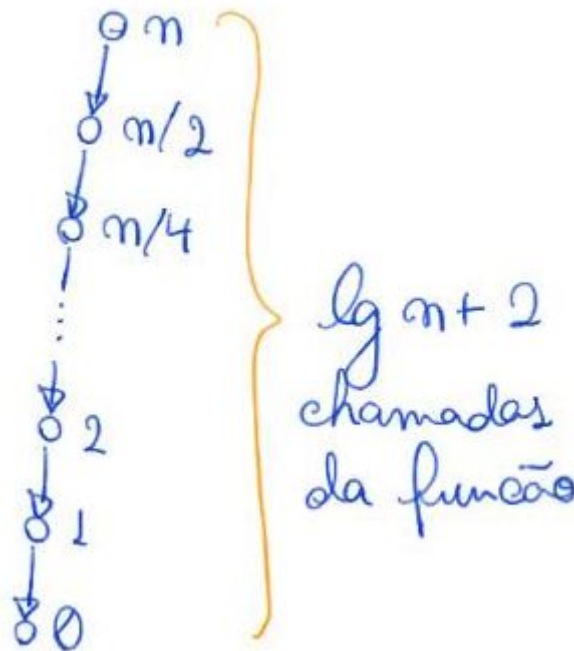 n
n/2
n/4
...
2
1
0
lg n + 2
chamadas
da funcão